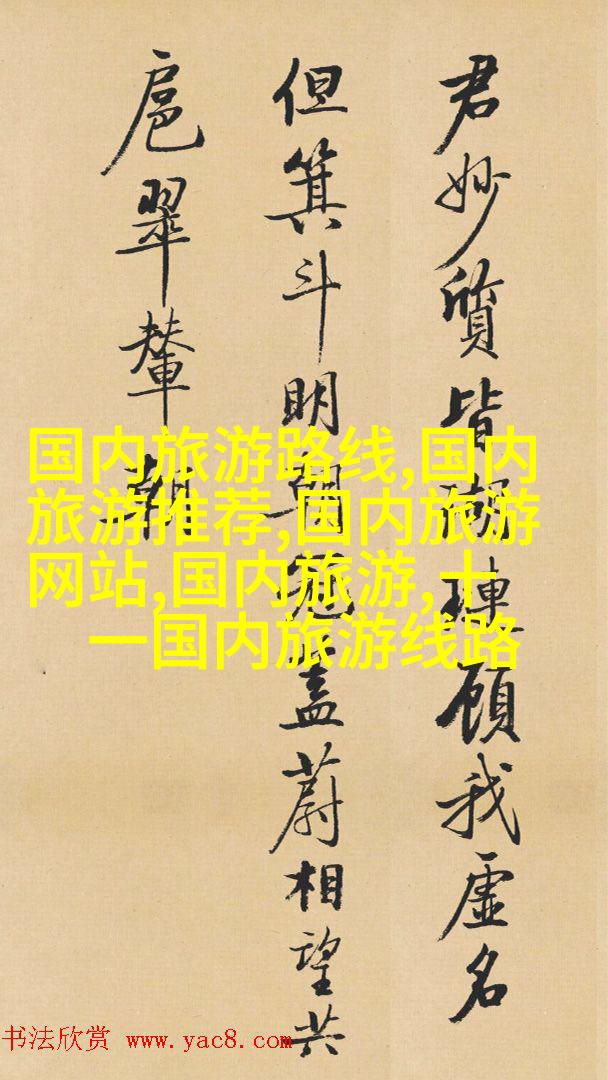 君妙質皆瑚璉顧我虛名
但箕斗明朝冠蓋蔚相望共
扈翠輦朝
国内旅游路线,国内
旅游推荐,国内旅游
网站,国内旅游,十
一国内旅游线路
书法欣赏 www.yac8.com